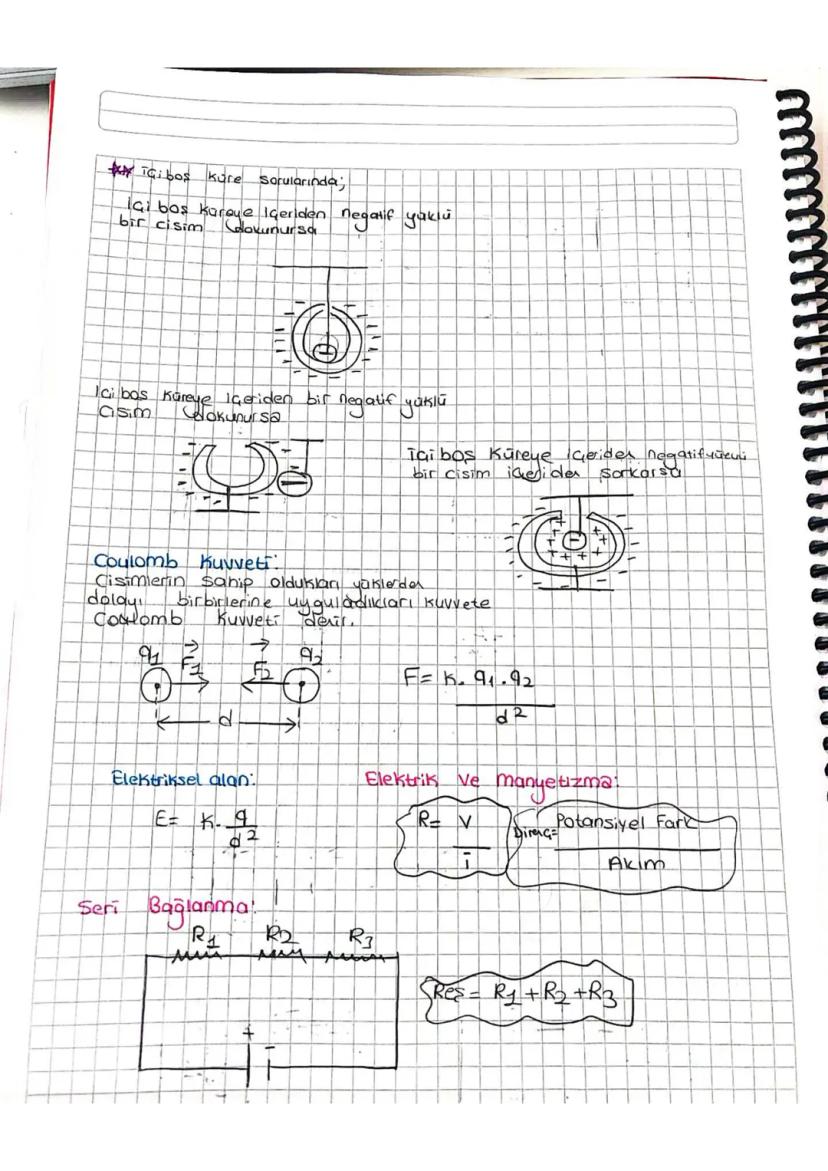 ** içi boş küre sorularında;
İçi boş küreye içeriden negatif yüklü
bir cisim dokunursa
İçi boş küreye içeriden bir negatif yüklü
cisim dokunursa
İçi boş küreye içeriden
bir cisim içeriden sarkarsa
Coulomb Kuvveti:
Cisimlerin sahip oldukları yüklerden
dolayı birbirlerine uyguladıkları kuvvete
Coulomb Kuvveti denir.
q1 F1 F2 q2
d
F= K. q1.q2
d2
Elektriksel alan:
E= K. q
d2
Elektrik ve manyetizma:
R= V
i
Direnç= Potansiyel Fark
Akım
Seri Bağlanma:
R1 R2 R3
+ -
Reş = R1+R2+R3